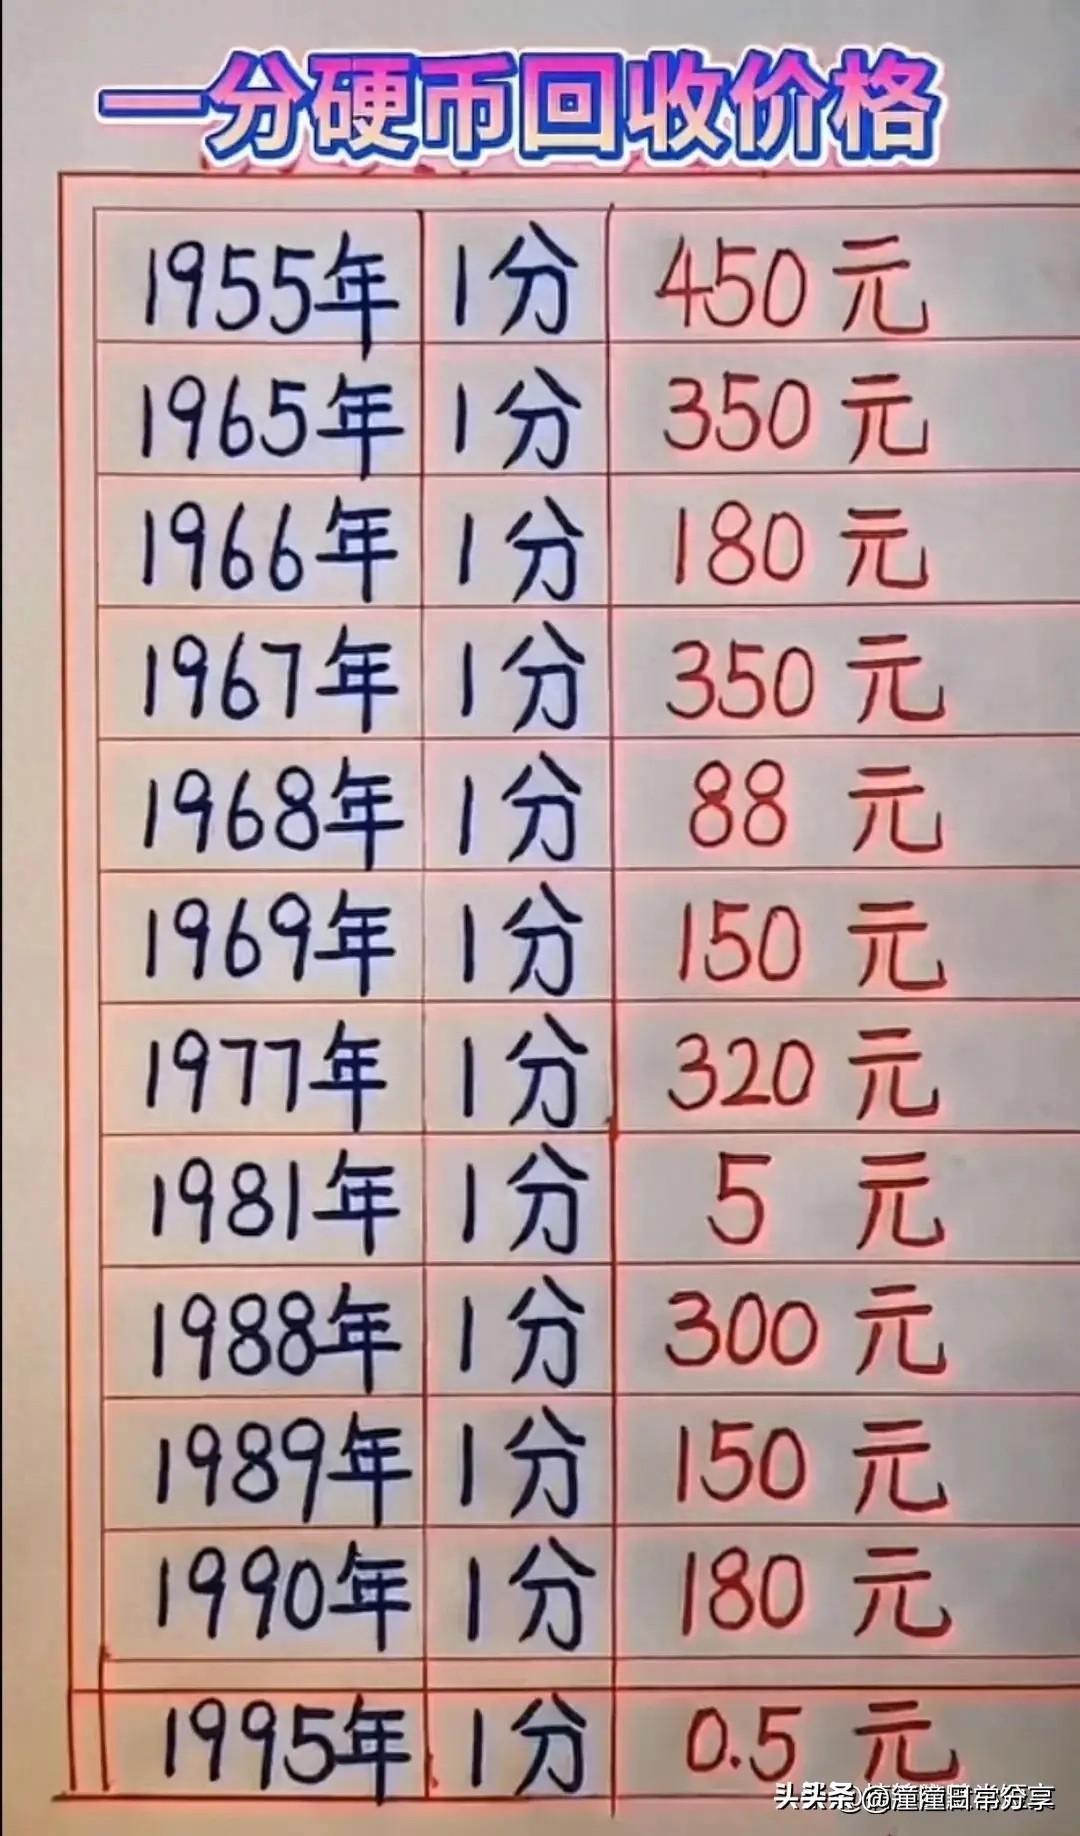 一分硬币回收价格
1955年 1分 450元
1965年 1分 350元
1966年 1分 180元
1967年 1分 350元
1968年 1分 88元
1969年 1分 150元
1977年 1分 320元
1981年 1分 5元
1988年 1分 300元
1989年 1分 150元
1990年 1分 180元
1995年 1分 0.5元
头条 @潼潼日常分享